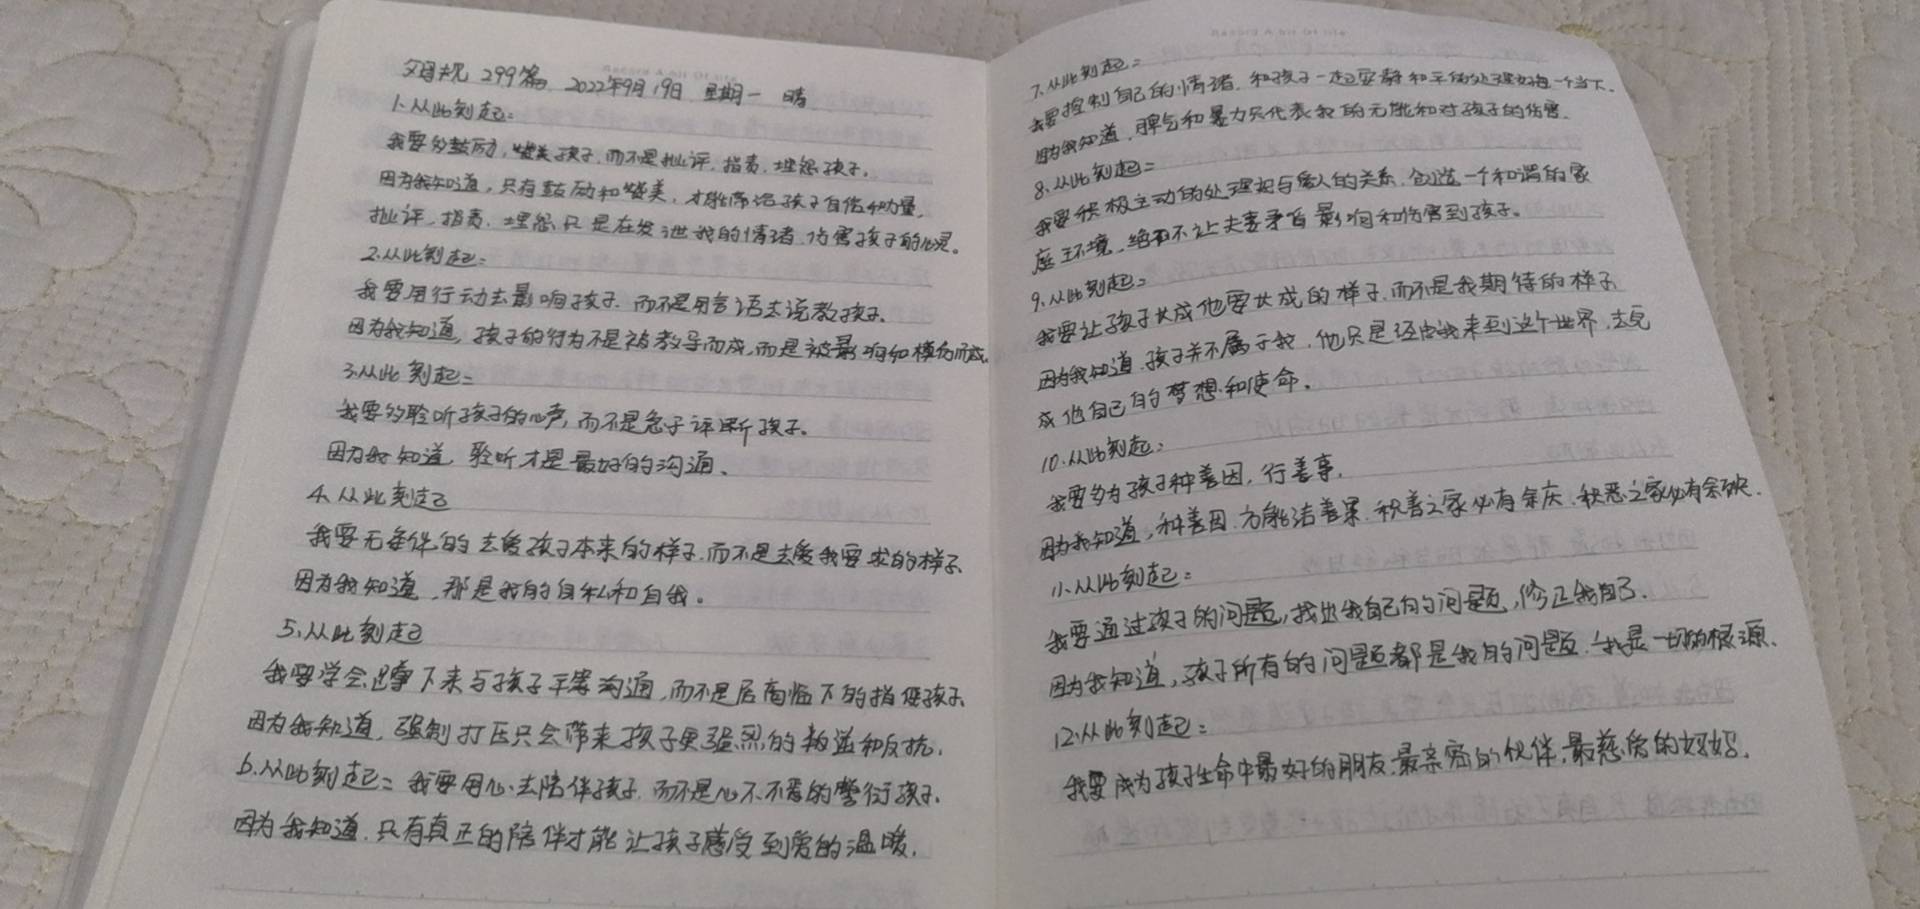 父母规 299篇 2022年9月19日 星期一 晴
1.从此刻起:
我要多鼓励,赞美孩子,而不是批评,指责,埋怨孩子。
因为我知道,只有鼓励和赞美,才能带给孩子自信和力量,
批评,指责、埋怨只是在发泄我的情绪,伤害孩子的心灵。
2.从此刻起:
我要用行动去影响孩子.而不是用言语去说教孩子.
因为我知道,孩子的行为不是被教导而成,而是被影响和模仿而成.
3.从此刻起:
我要多聆听孩子的心声,而不是急于评断孩子.
因为我知道,聆听才是最好的沟通.
4.从此刻起
我要无条件的去爱孩子本来的样子.而不是去爱我要求的样子.
因为我知道,那是我的自私和自我。
5.从此刻起
我要学会蹲下来与孩子平等沟通,而不是居高临下的指使孩子.
因为我知道,强制打压只会带来孩子更强烈的叛逆和反抗.
6.从此刻起:我要用心去陪伴孩子,而不是心不不焉的敷衍孩子.
因为我知道.只有真正的陪伴才能让孩子感受到爱的温暖.
Record A bit Of life
7.从此刻起:
我要控制自己的情绪.和孩子一起安静和平的处理好每一个当下.
因为我知道,脾气和暴力只代表我的无能和对孩子的伤害.
8.从此刻起:
我要积极主动的处理好与爱人的关系,创造一个和谐的家
庭环境,绝不让夫妻矛盾影响和伤害到孩子。
9.从此刻起:
我要让孩子长成他要长成的样子.而不是我期待的样子
因为我知道,孩子并不属于我,他只是经由我来到这个世界,去完
成他自己的梦想和使命.
10.从此刻起:
我要多为孩子种善因,行善事,
因为我知道,种善因.方能结善果.积善之家必有余庆.积恶之家必有余殃.
11.从此刻起:
我要通过孩子的问题,找出我自己的问题,修正我自己.
因为我知道,孩子所有的问题都是我的问题.我是一切的根源.
12.从此刻起:
我要成为孩子生命中最好的朋友.最亲密的伙伴,最慈爱的妈妈.